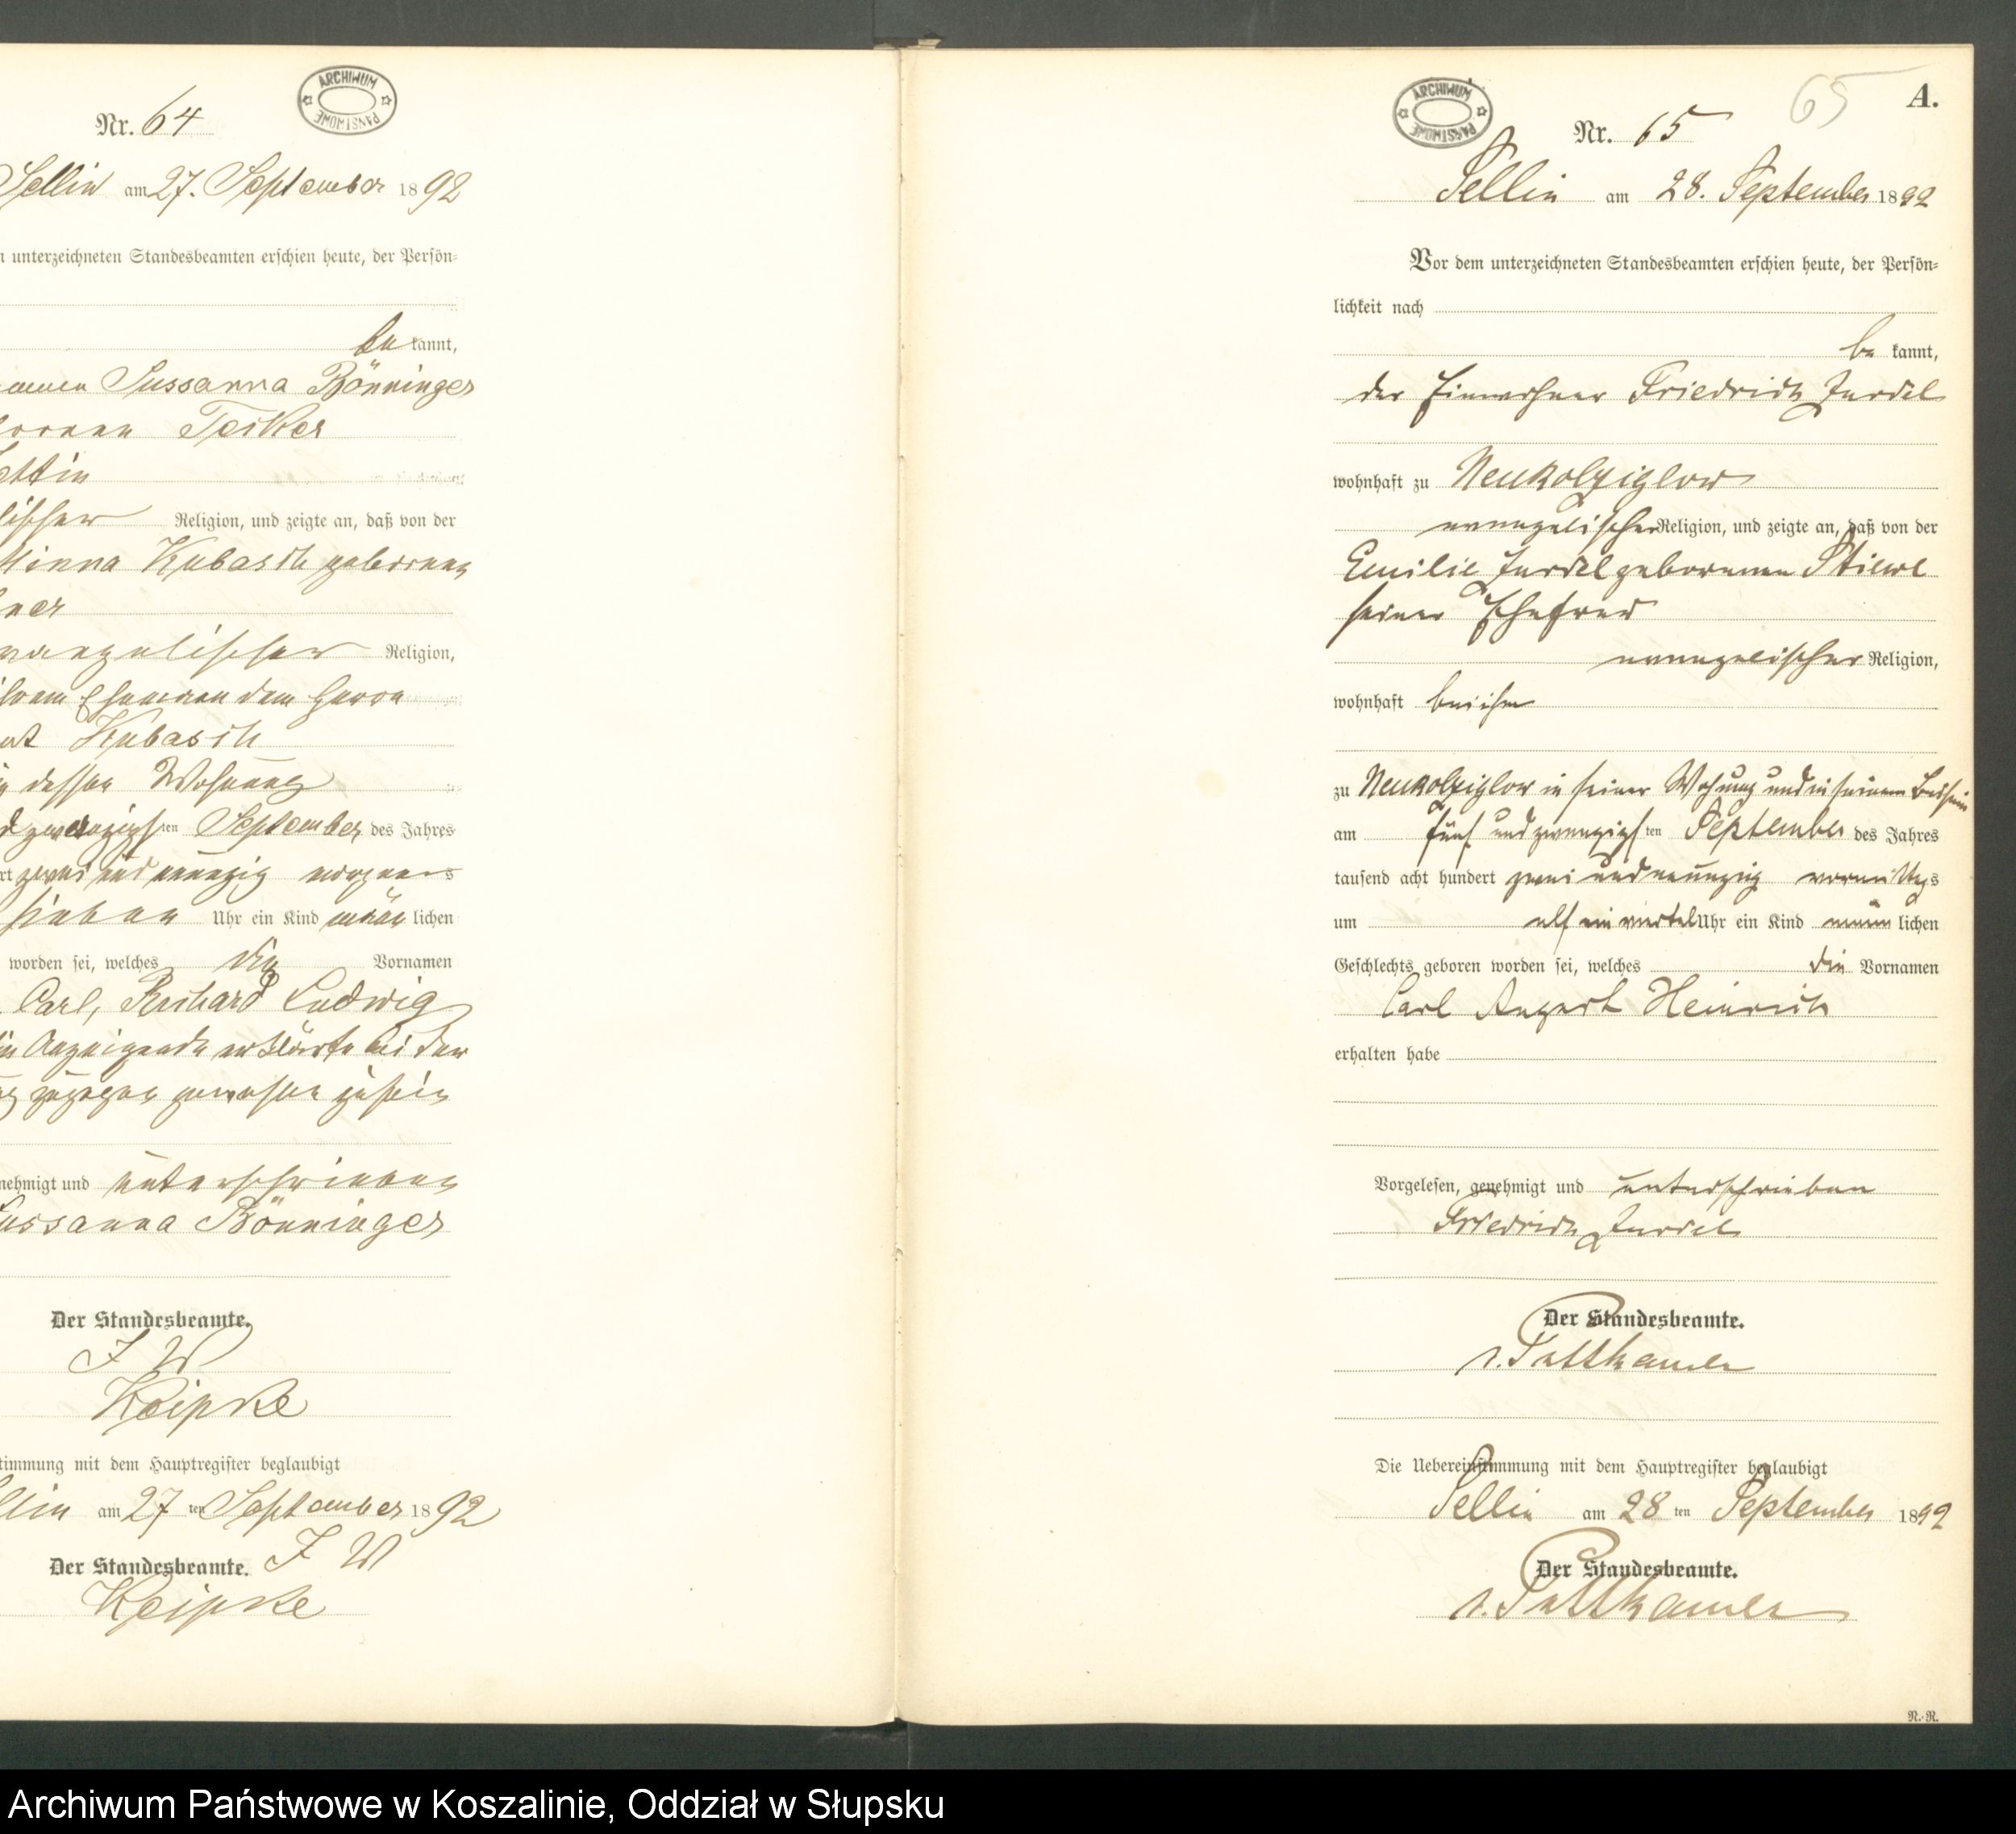 ARCHIWUM PAŃSTWOWE
Nr. 64
Sellin am 27. September 1892
unterzeichneten Standesbeamten erschien heute, der Persön-
be kannt,
Sussanna Bönninger
Lettin
Religion, und zeigte an, daß von der
Minna Kubasch geborenen
evangelischer Religion,
ihrem Ehemann dem Herrn
Kubasch
in dessen Wohnung
zwanzigsten September des Jahres
zwei und neunzig morgens
sieben Uhr ein Kind männ lichen
worden sei, welches die Vornamen
Carl, Richard Ludwig
Anzeigende erklärte bei der
zugegen gewesen zu sein
nehmigt und unterschrieben
Sussanna Bönninger
Der Standesbeamte.
J W
Keipke
stimmung mit dem Hauptregister beglaubigt
Sellin am 27 ten September 1892
Der Standesbeamte. J W
Keipke
ARCHIWUM PAŃSTWOWE
65
A.
Nr. 65
Sellin am 28. September 1892
Vor dem unterzeichneten Standesbeamten erschien heute, der Persön-
lichkeit nach
be kannt,
der Einwohner Friedrich Jurdel
wohnhaft zu Neukolziglow
evangelischer Religion, und zeigte an, daß von der
Emilie Jurdel geborenen Stiewe
seiner Ehefrau
evangelischer Religion,
wohnhaft bei ihm
zu Neukolziglow in seiner Wohnung und in seinem Beisein
am fünf und zwanzigsten September des Jahres
tausend acht hundert zwei und neunzig vormittags
um elf ein viertel Uhr ein Kind männ lichen
Geschlechts geboren worden sei, welches die Vornamen
Carl August Heinrich
erhalten habe
Vorgelesen, genehmigt und unterschrieben
Friedrich Jurdel
Der Standesbeamte.
v. Puttkamer
Die Uebereinstimmung mit dem Hauptregister beglaubigt
Sellin am 28 ten September 1892
Der Standesbeamte.
v. Puttkamer
N.-R.
Archiwum Państwowe w Koszalinie, Oddział w Słupsku